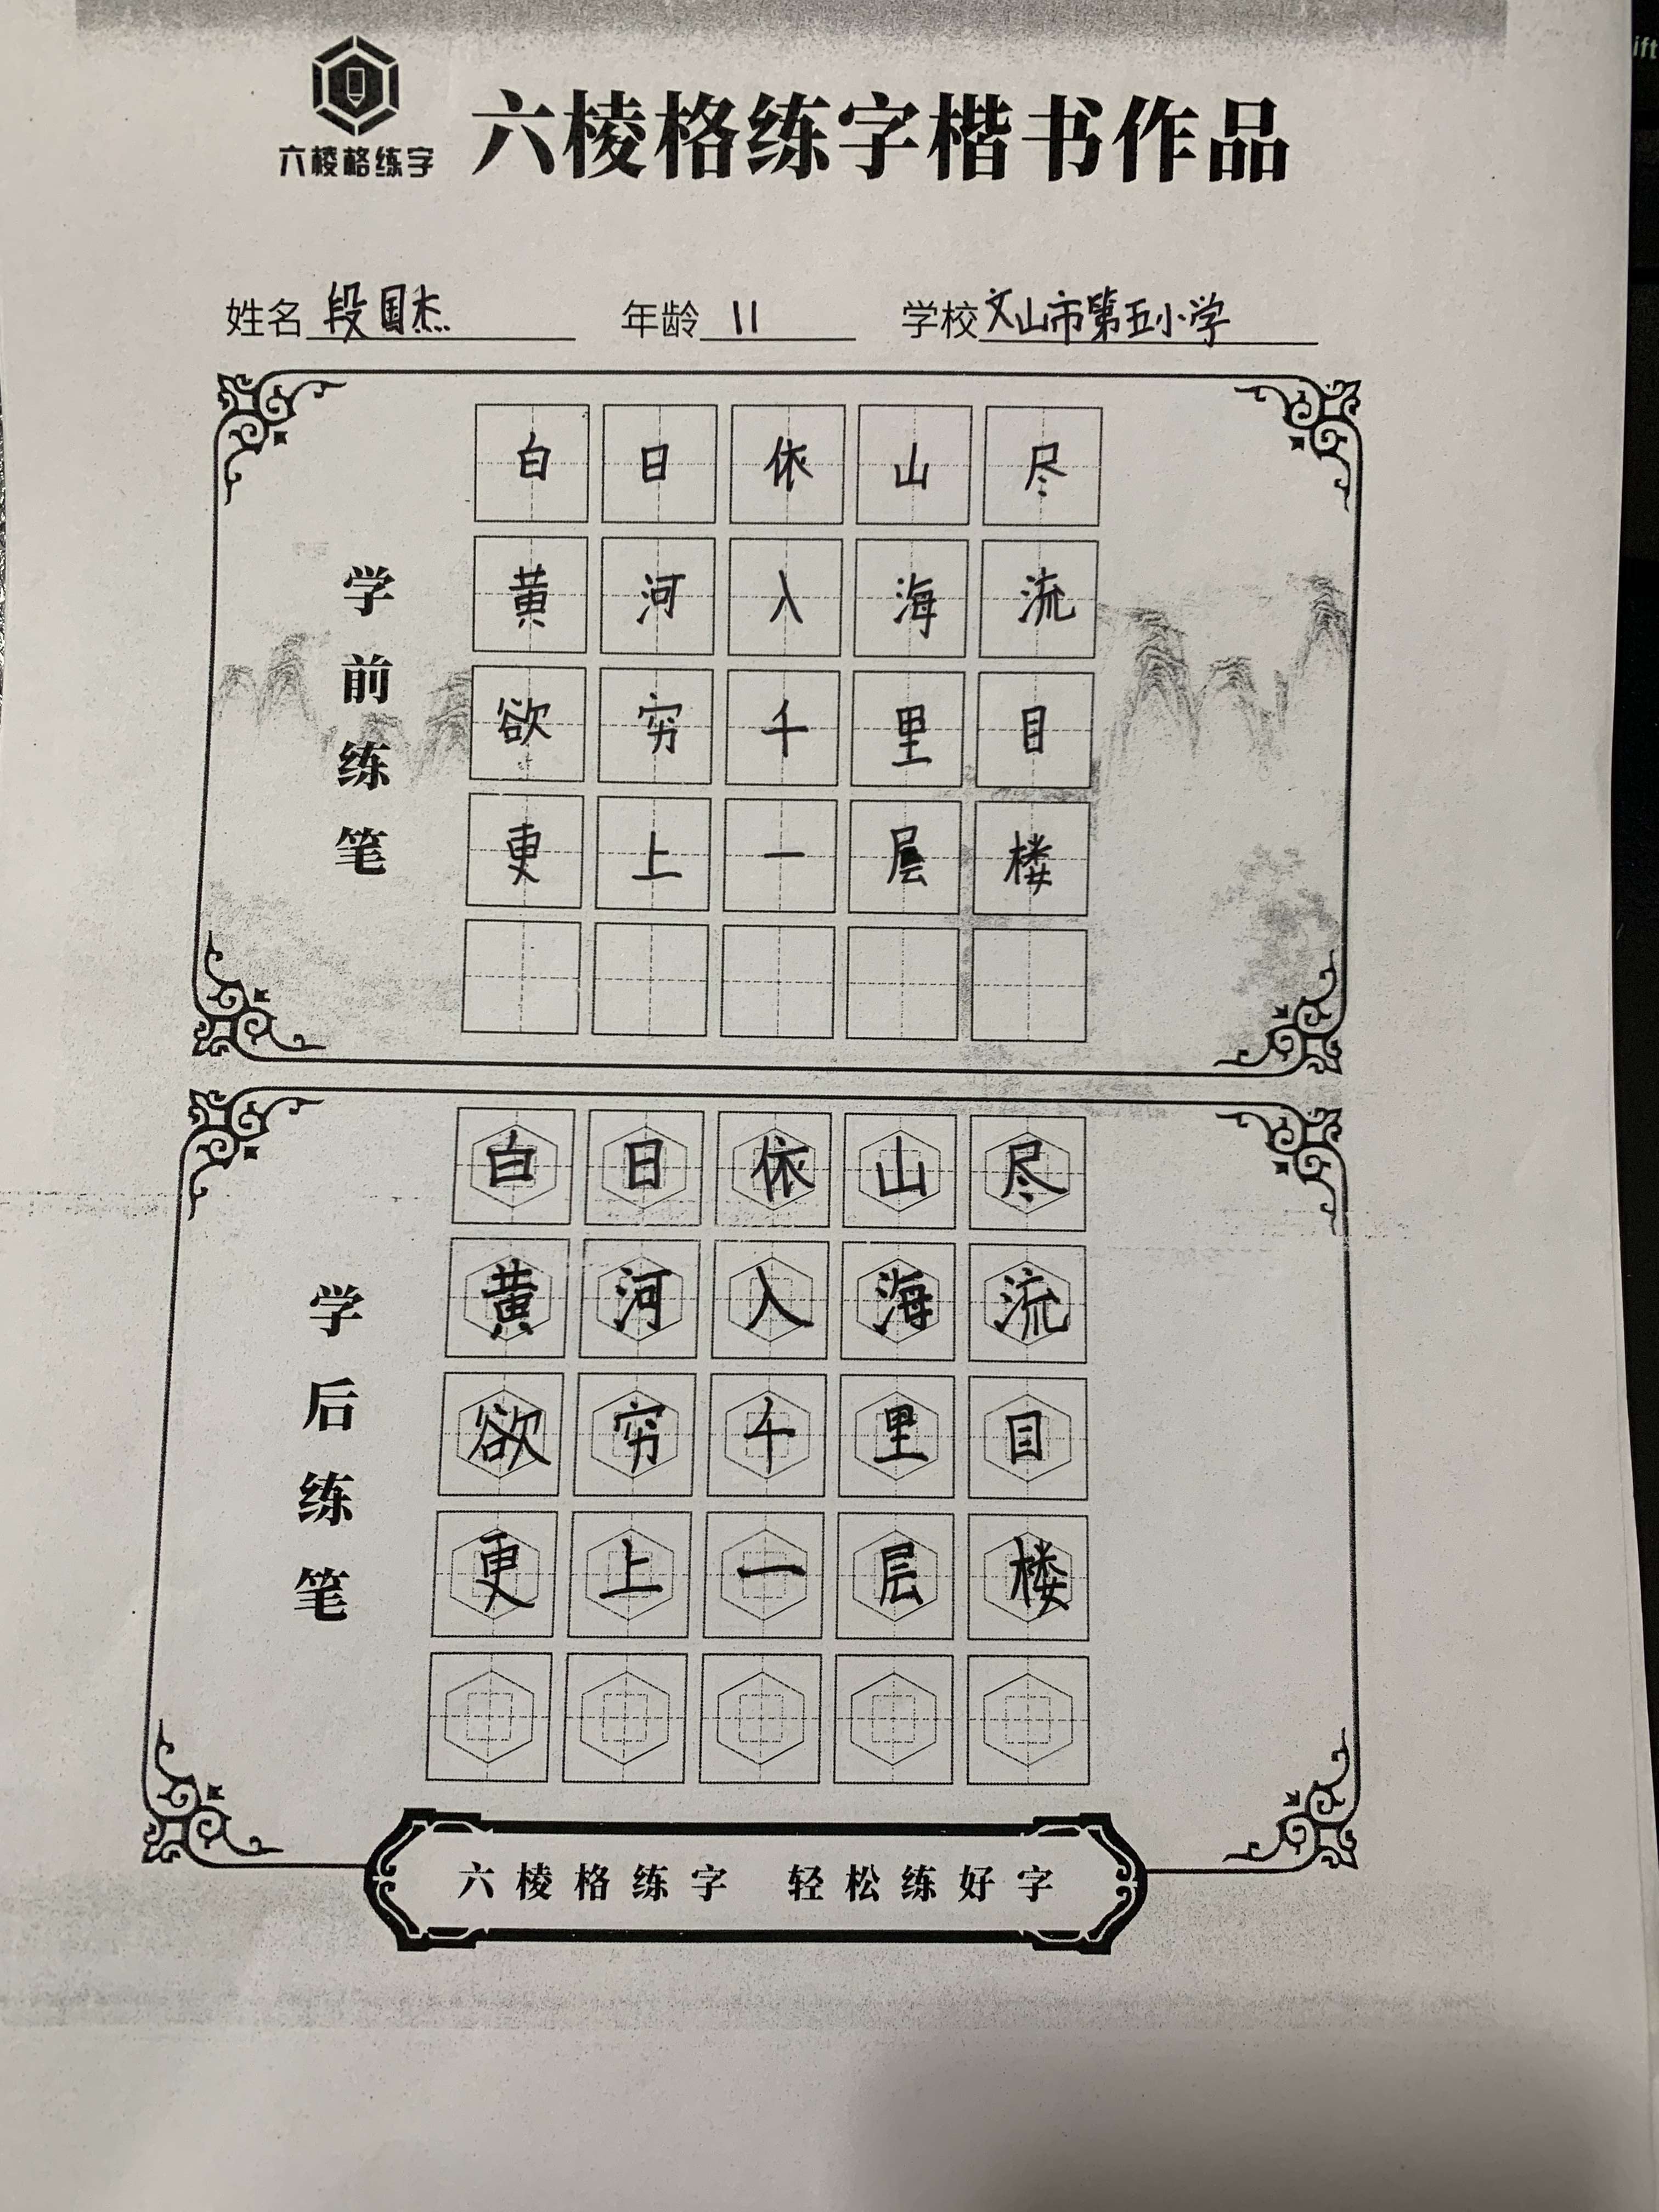 ift
六棱格练字
六棱格练字楷书作品
姓名 段国杰 年龄 11 学校 文山市第五小学
学前练笔
白日依山尽
黄河入海流
欲穷千里目
更上一层楼
学后练笔
白日依山尽
黄河入海流
欲穷千里目
更上一层楼
六棱格练字 轻松练好字